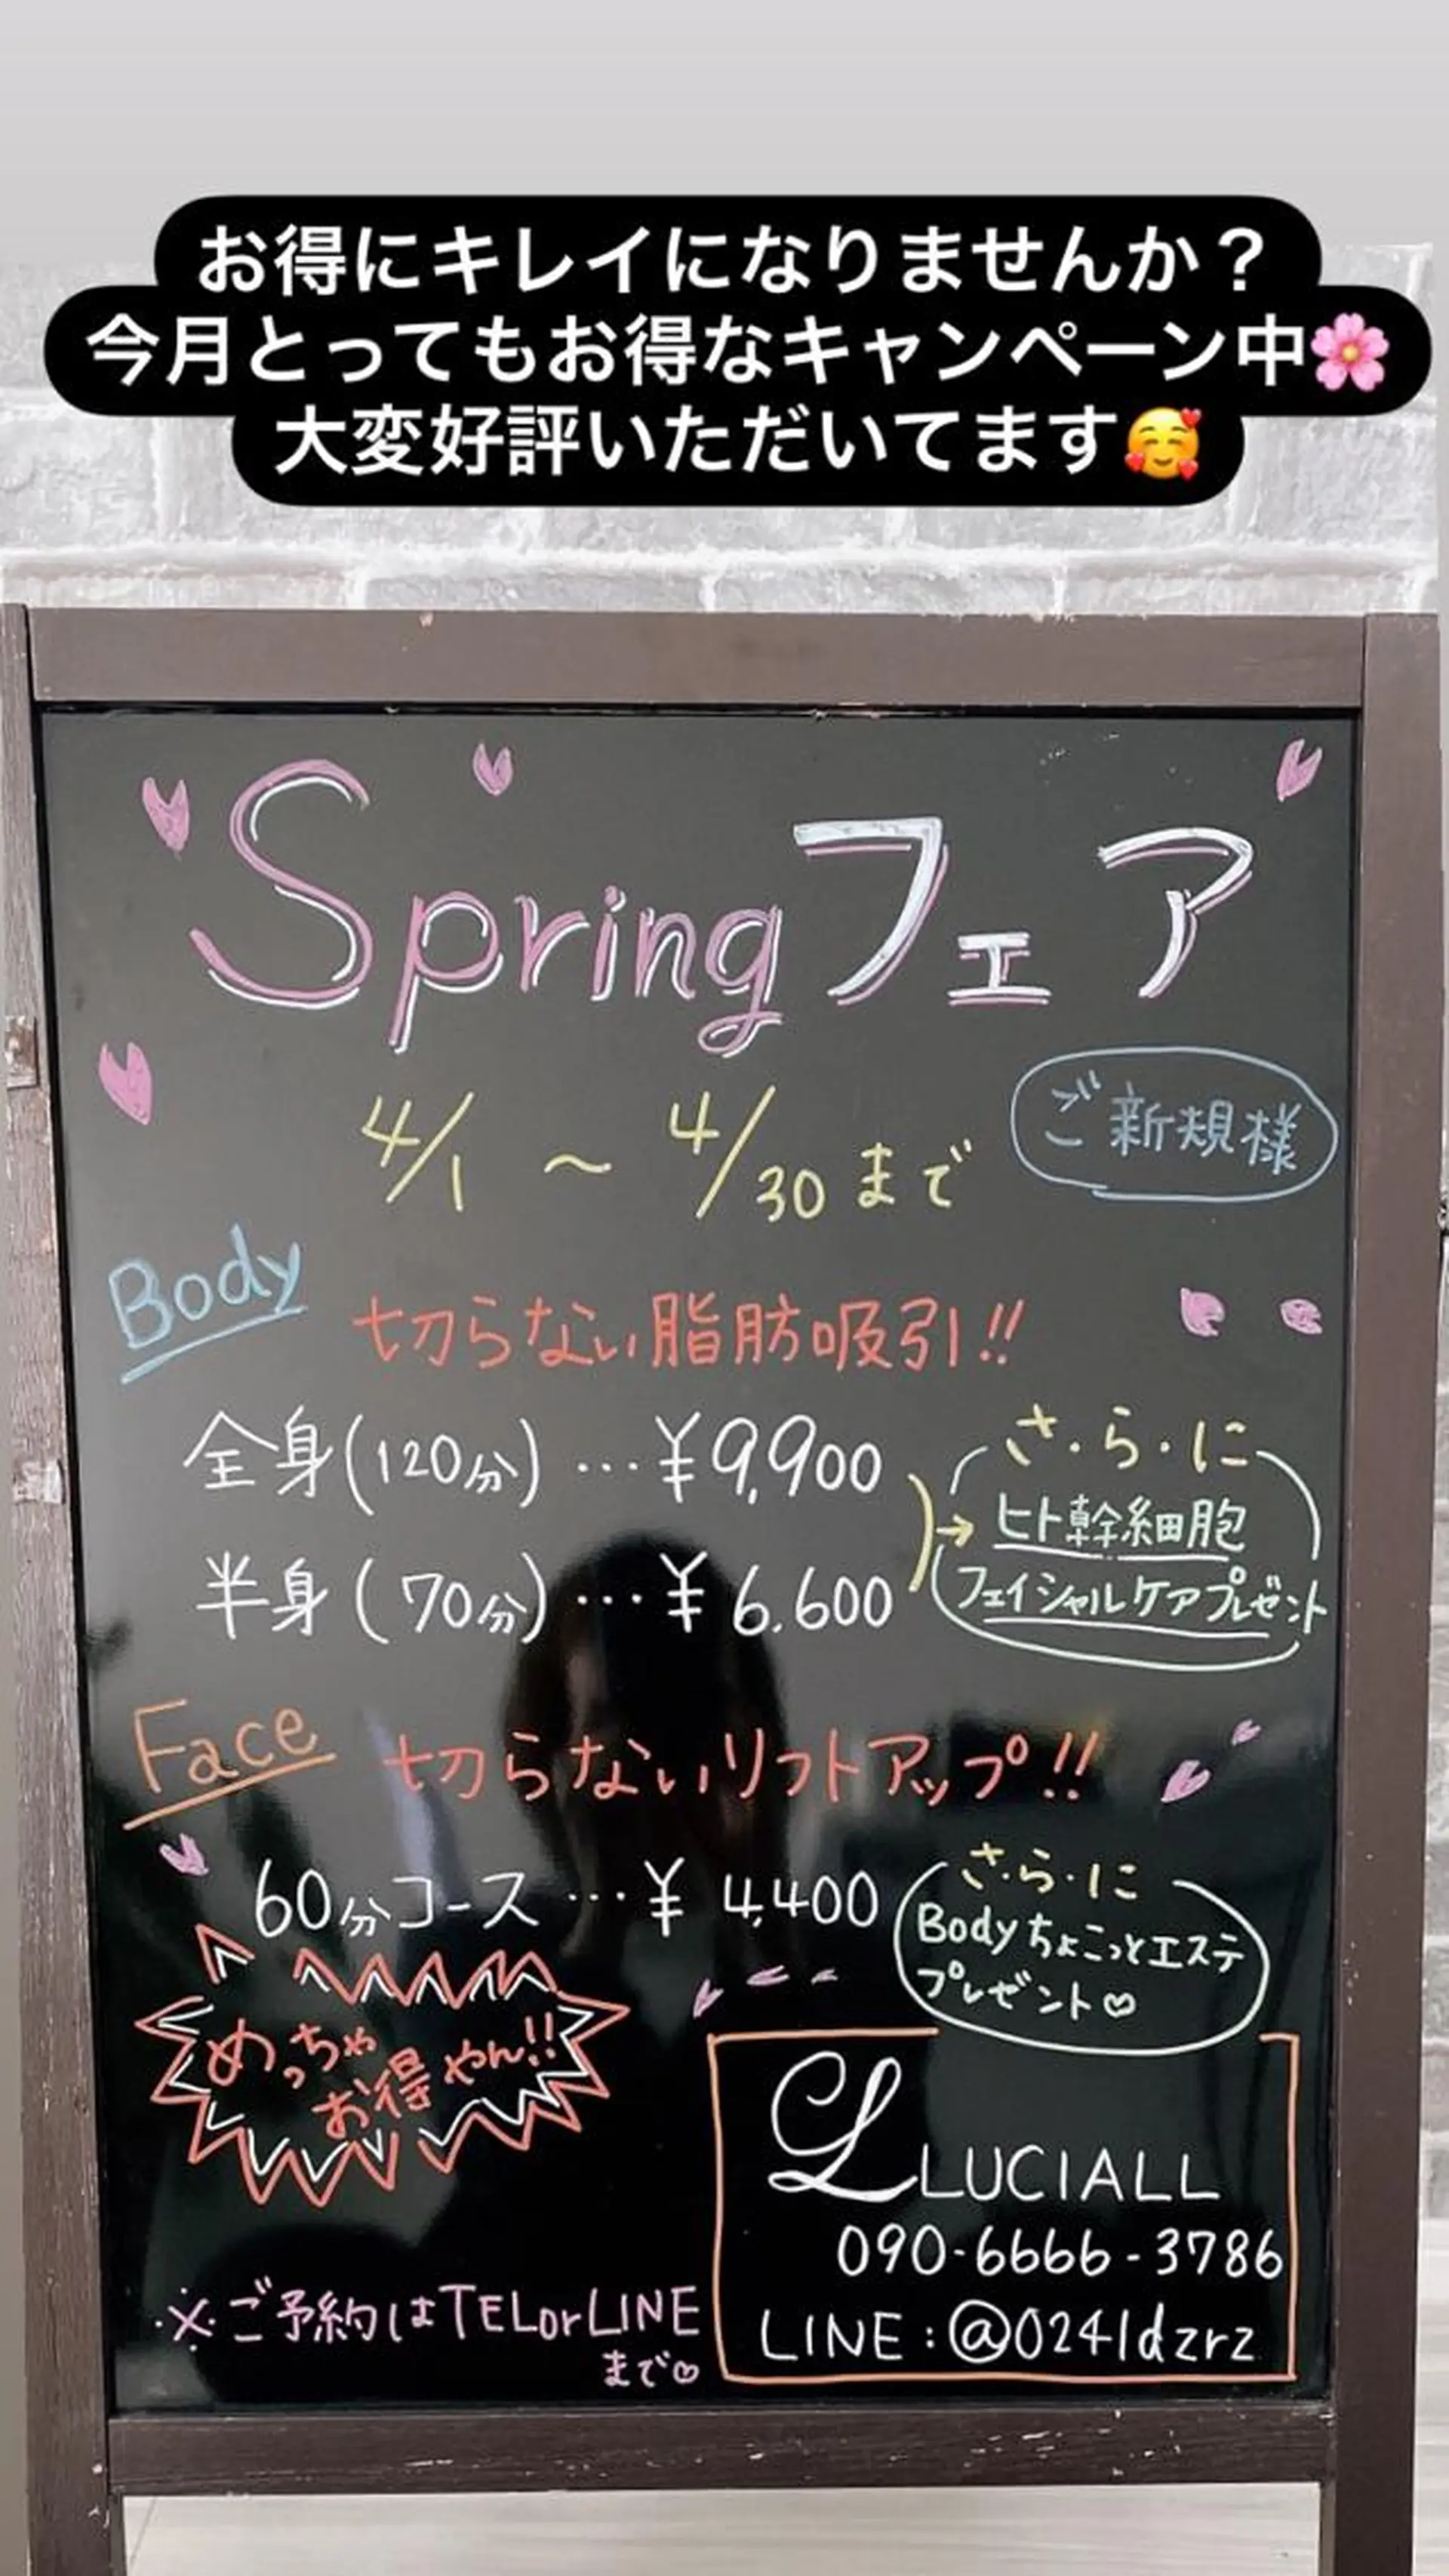 お得にキレイになりませんか？
今月とってもお得なキャンペーン中🌸
大変好評いただいてます🥰
Springフェア
4/1 〜 4/30 まで
ご新規様
Body
切らない脂肪吸引!!
全身(120分) … ¥9,900
半身(70分) … ¥6,600
さ・ら・に
ヒト幹細胞
フェイシャルケアプレゼント
Face
切らないリフトアップ!!
60分コース … ¥4,400
さ・ら・に
Bodyちょこっとエステ
プレゼント♡
めっちゃ
お得やん!!
L LUCIALL
090-6666-3786
LINE:@0241dzrz
※ご予約はTELorLINE
まで♡